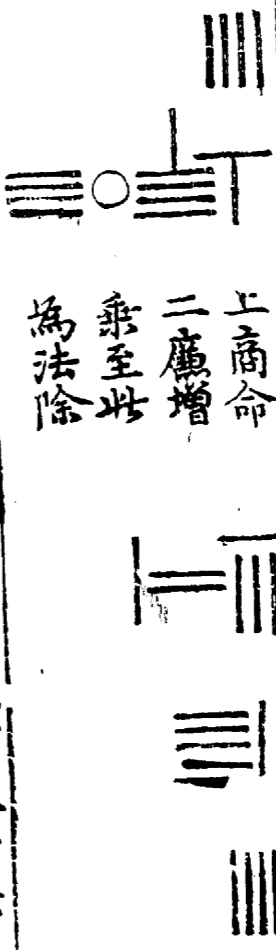 上商命
二廉增
乘至此
為法除